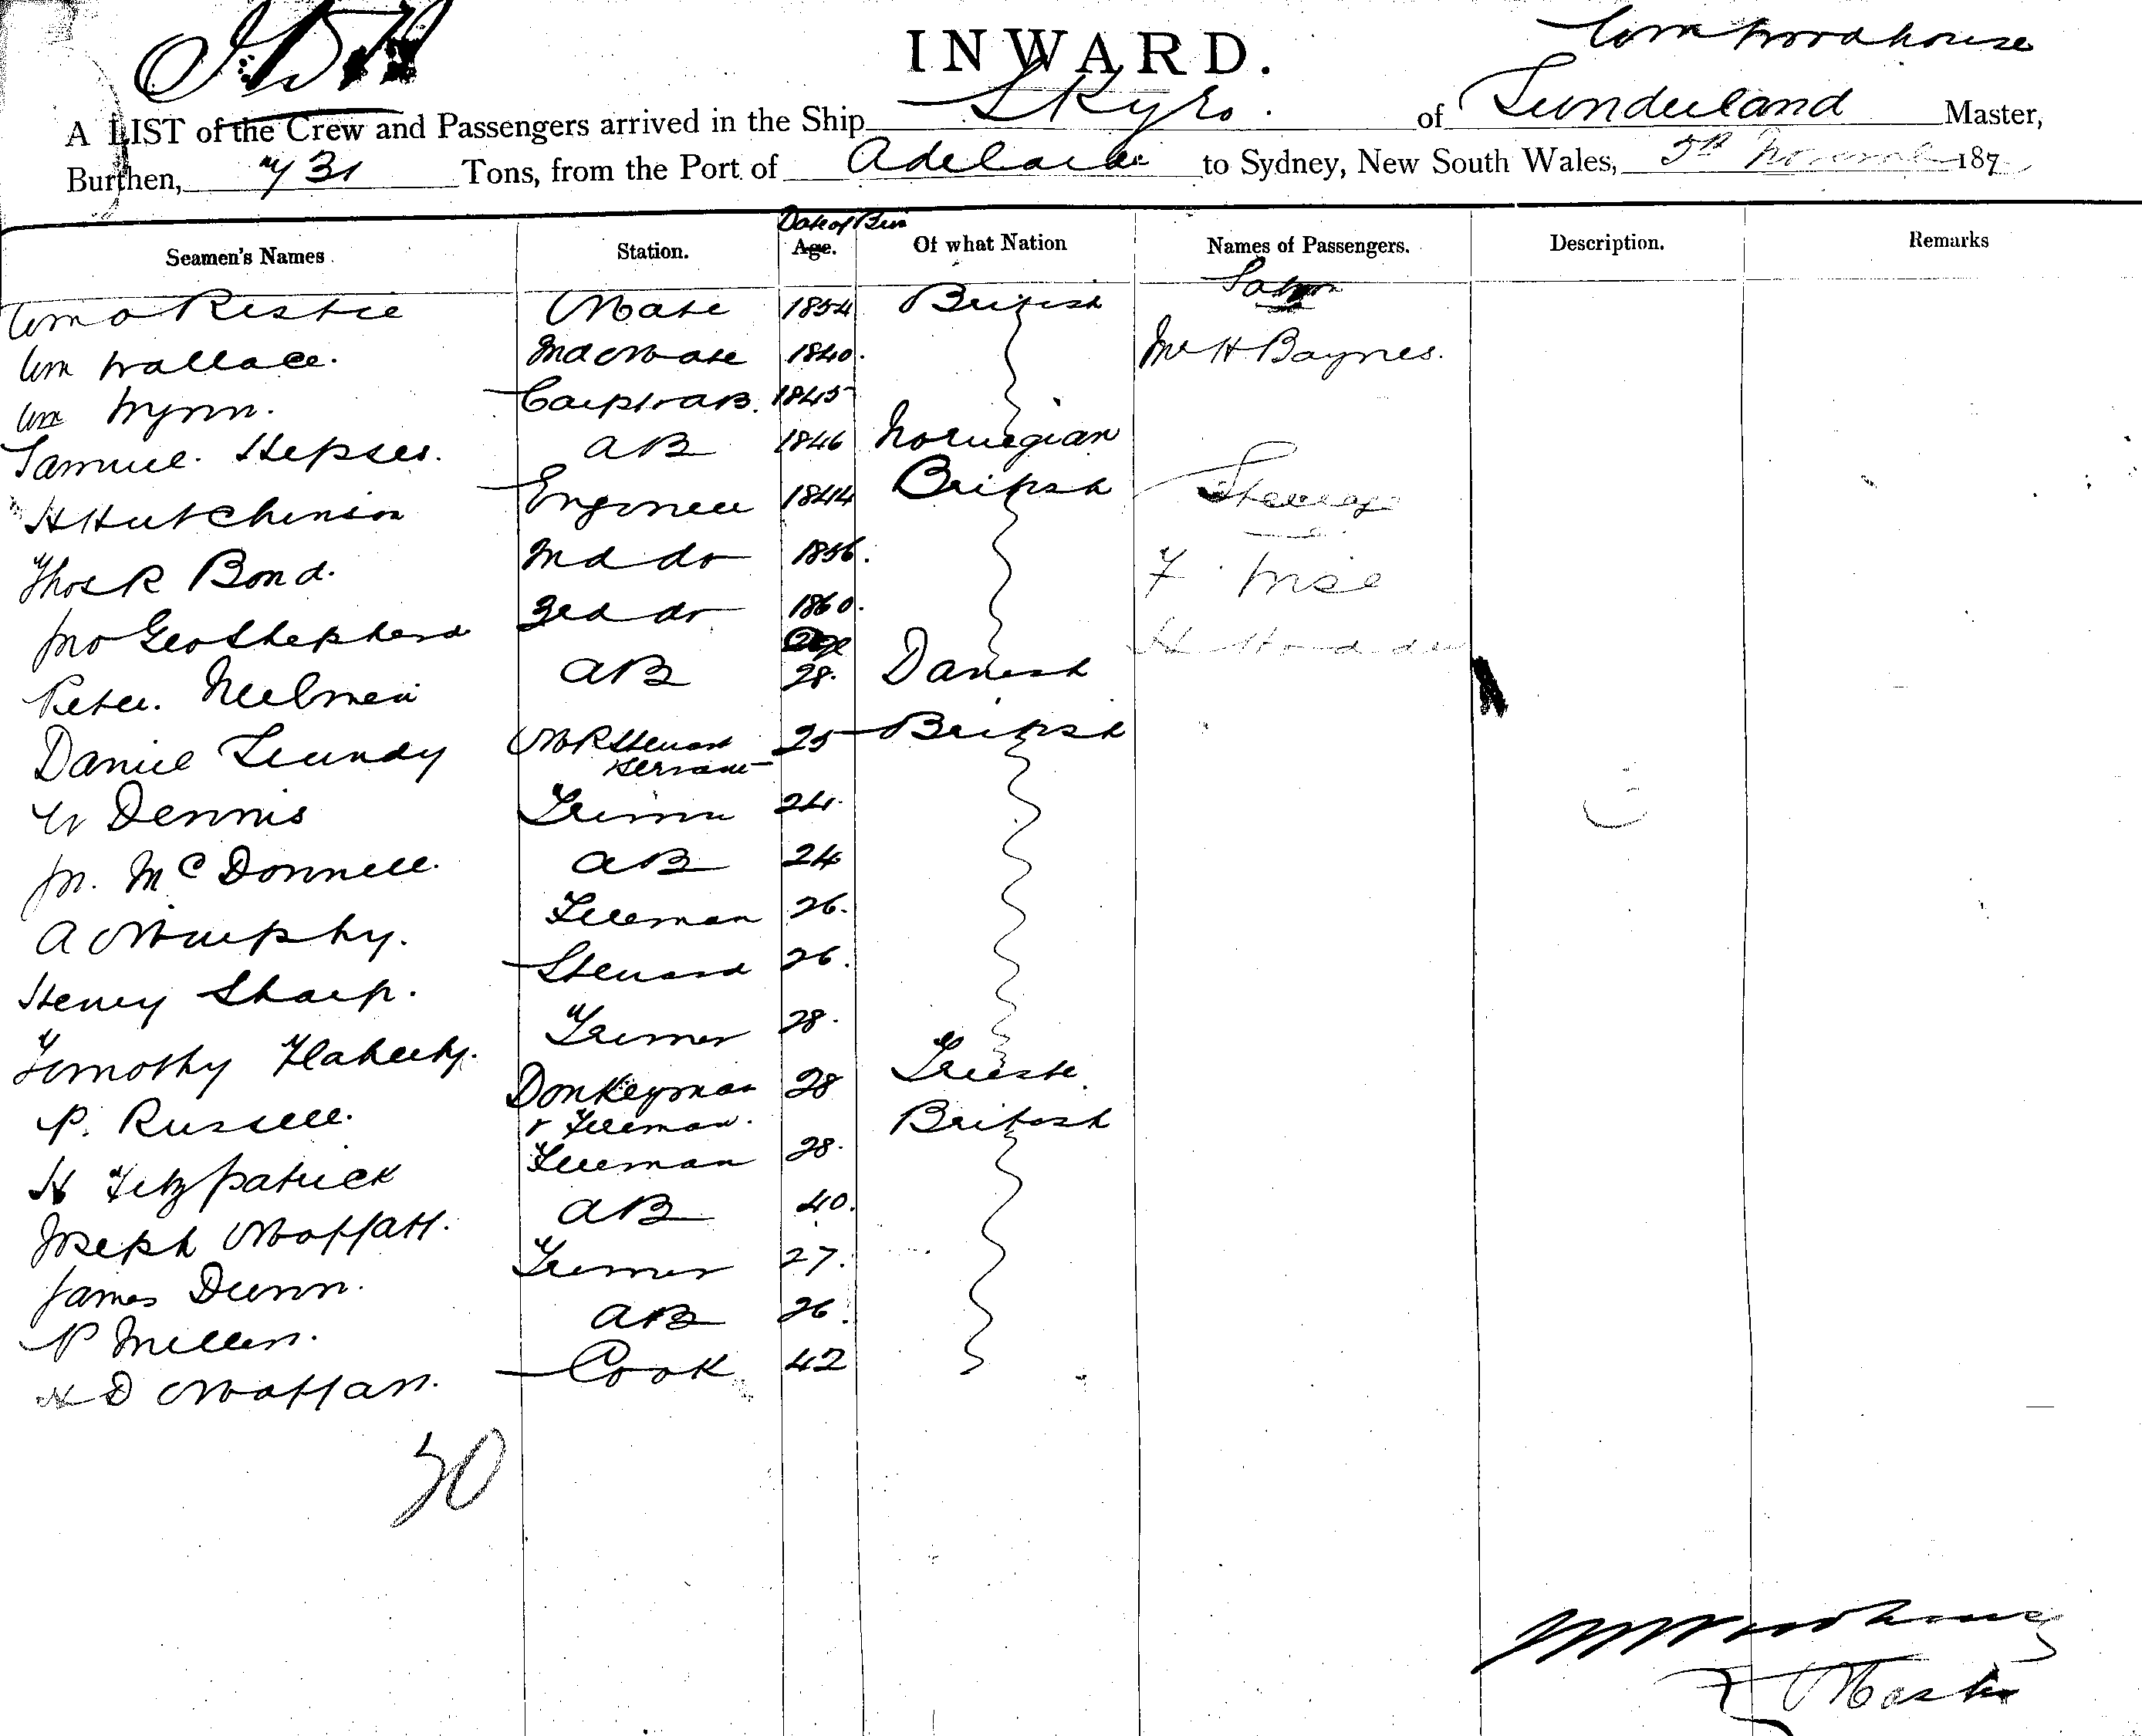 INWARD.
Wm Woodhouse
A LIST of the Crew and Passengers arrived in the Ship Skyro. of Sunderland Master,
Burthen, Tons, from the Port of Adelaide to Sydney, New South Wales, 5th November 187
Date of Birth
Seamen's Names Station. Age. Of what Nation Names of Passengers. Description. Remarks
Saloon
Ristie Mate 1854 British
Wm Wallace. 2nd Mate 1840. Mr H Baynes.
Wm Wynn. Carptr AB. 1845
Samuel AB 1846 Norwegian
H Hutchinson Engineer 1844 British Steerage
Thos R Bond. 2nd do 1856. F Wise
Jno Geo Shepherd 3rd do 1860.
Age
Peter AB 28. Danish
Daniel MR Steward 25 British
Servant
W Dennis Trimmer 24.
Jn. McDonnell. AB 24
A Murphy. Fireman 26.
Henry Sharp. Steward 26.
Timothy Flaherty. Trimmer 28.
P. Russell. Donkeyman 28 Trieste.
& Fireman. British
H Fitzpatrick Fireman 28.
Joseph Moffatt. AB 40.
James Dunn. Trimmer 27.
P Miller. AB 26.
H D Moffatt. Cook 42
30
Wm Woodhouse
Master